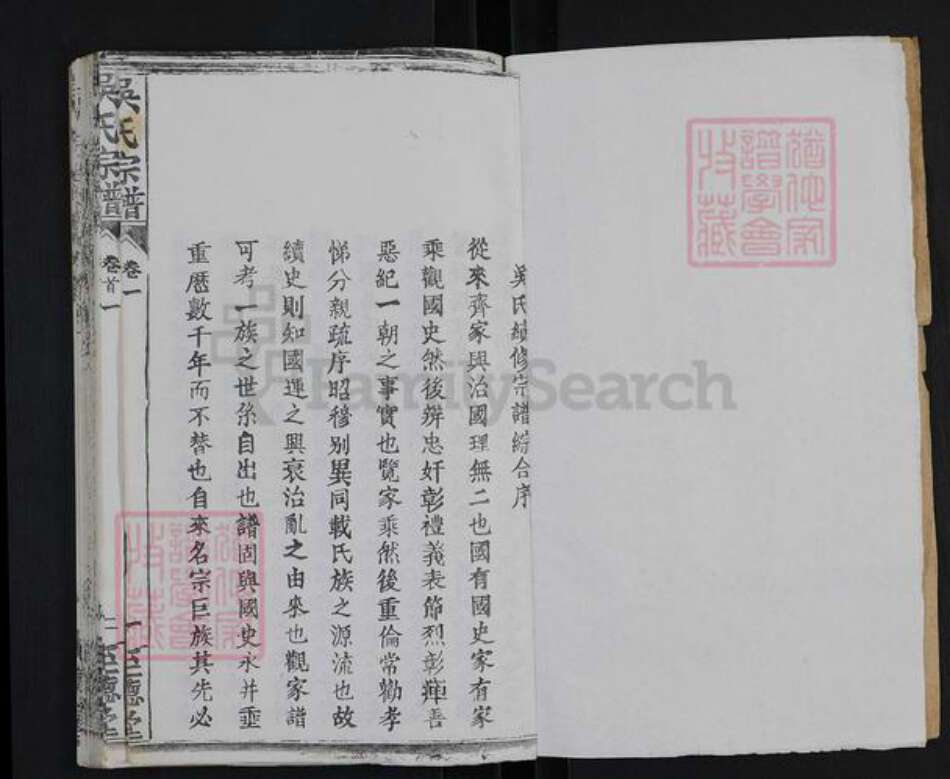 吳氏續修宗譜綜合序
從來齊家與治國理無二也國有國史家有家
乘觀國史然後辨忠奸彰禮義表節烈彰癉善
惡紀一朝之事實也覽家乘然後重倫常勸孝
悌分親疏序昭穆别異同載氏族之源流也故
續史則知國運之興衰治亂之由來也觀家譜
可考一族之世系自出也譜固與國史永并垂
重歷數千年而不替也自來名宗巨族其先必
吳氏宗譜
卷一
一
吳氏宗譜
卷首一
二
FamilySearch